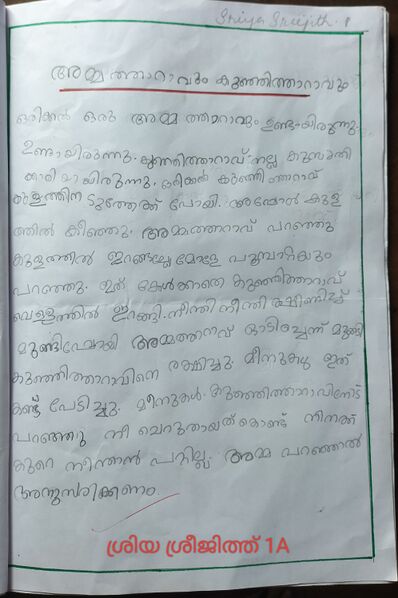 Sriya Sreejith. 1
അമ്മത്താറാവും കുഞ്ഞിത്താറാവും
ഒരിക്കൽ ഒരു അമ്മ ത്താറാവും ഉണ്ടായിരുന്നു.
ഉണ്ടായിരുന്നു. കുഞ്ഞിത്താറാവ് നല്ല കുസൃതി
ക്കാരിയായിരുന്നു. ഒരിക്കൽ കുഞ്ഞി ത്താറാവ്
കുളത്തിന ടുത്തേക്ക് പോയി. അപ്പോൾ കുള
ത്തിൽ കൺഞു. അമ്മത്താറാവ് പറഞ്ഞു
കുളത്തിൽ ഇറങ്ങല്ലേ മോളേ
പറഞ്ഞു. ഇത് കേൾക്കാതെ കുഞ്ഞിത്താറാവ്
വെള്ളത്തിൽ ഇറങ്ങി. നീന്തി നീന്തി ക്ഷീണിച്ച്
മുങ്ങിപ്പോയി അമ്മത്താറാവ് ഓടിച്ചെന്ന് മുങ്ങി
കുഞ്ഞിത്താറാവിനെ രക്ഷിച്ചു. മീനുകളു ഇത്
കണ്ട് പേടിച്ചു. മീനുകൾ കുഞ്ഞിത്താറാവിനോട്
പറഞ്ഞു നീ ചെറുതായത് കൊണ്ട് നിനക്ക്
കുറെ നീന്താൻ പറ്റില്ല. അമ്മ പറഞ്ഞാൽ
അനുസരിക്കണം.
ശ്രിയ ശ്രീജിത്ത് 1A